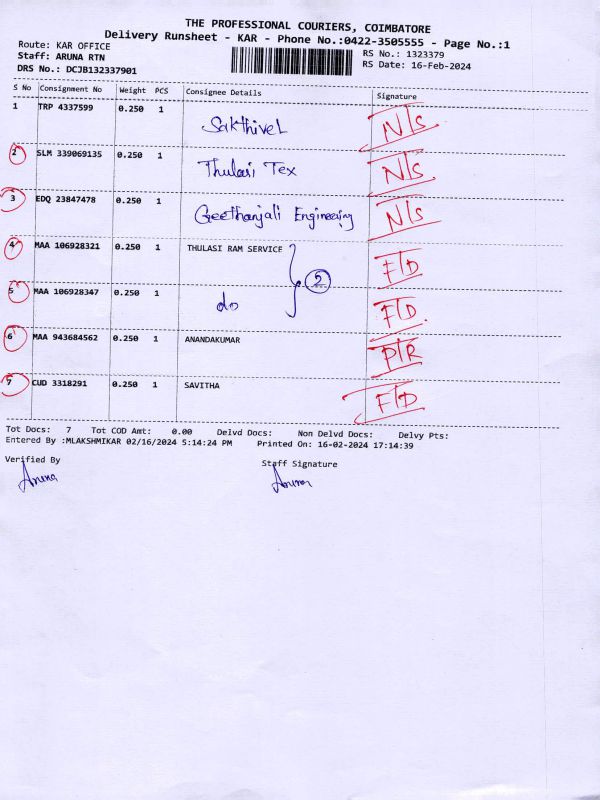 THE PROFESSIONAL COURIERS, COIMBATORE
Delivery Runsheet - KAR - Phone No.:0422-3505555 - Page No.:1
Route: KAR OFFICE
RS No.: 1323379
Staff: ARUNA RTN
RS Date: 16-Feb-2024
DRS No.: DCJB132337901
S No Consignment No Weight PCS Consignee Details Signature
1 TRP 4337599 0.250 1 Sakthivel N/S
2 SLM 339069135 0.250 1 Thulasi Tex N/S
3 EDQ 23847478 0.250 1 Geethanjali Engineering N/S
4 MAA 106928321 0.250 1 THULASI RAM SERVICE F/D
2
5 MAA 106928347 0.250 1 do F/D.
6 MAA 943684562 0.250 1 ANANDAKUMAR P/R
7 CUD 3318291 0.250 1 SAVITHA F/D
Tot Docs: 7 Tot COD Amt: 0.00 Delvd Docs: Non Delvd Docs: Delvy Pts:
Entered By :MLAKSHMIKAR 02/16/2024 5:14:24 PM Printed On: 16-02-2024 17:14:39
Verified By Staff Signature
Aruna Aruna